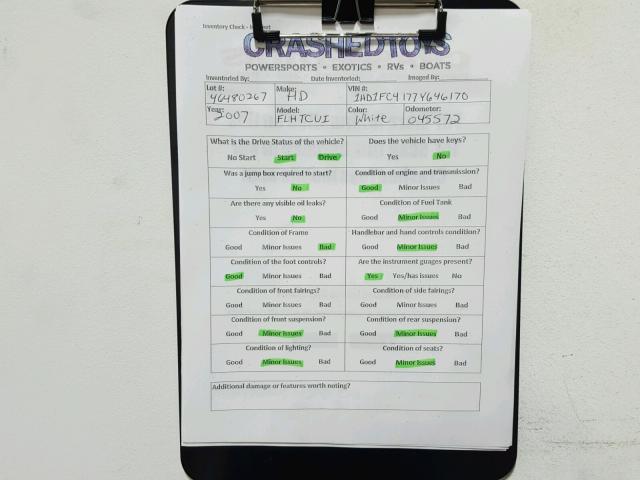 Inventory Check - In
CRASHEDTOYS
POWERSPORTS • EXOTICS • RVs • BOATS
Inventoried By: Date Inventoried: Imaged By:
Lot #: Make: VIN #:
46480267 HD 1HD1FC4177Y646170
Year: Model: Color: Odometer:
2007 FLHTCUI White 045572
What is the Drive Status of the vehicle? Does the vehicle have keys?
No Start Start Drive Yes No
Was a jump box required to start? Condition of engine and transmission?
Yes No Good Minor Issues Bad
Are there any visible oil leaks? Condition of Fuel Tank
Yes No Good Minor Issues Bad
Condition of Frame Handlebar and hand controls condition?
Good Minor Issues Bad Good Minor Issues Bad
Condition of the foot controls? Are the instrument guages present?
Good Minor Issues Bad Yes Yes/has issues No
Condition of front fairings? Condition of side fairings?
Good Minor Issues Bad Good Minor Issues Bad
Condition of front suspension? Condition of rear suspension?
Good Minor Issues Bad Good Minor Issues Bad
Condition of lighting? Condition of seats?
Good Minor Issues Bad Good Minor Issues Bad
Additional damage or features worth noting?